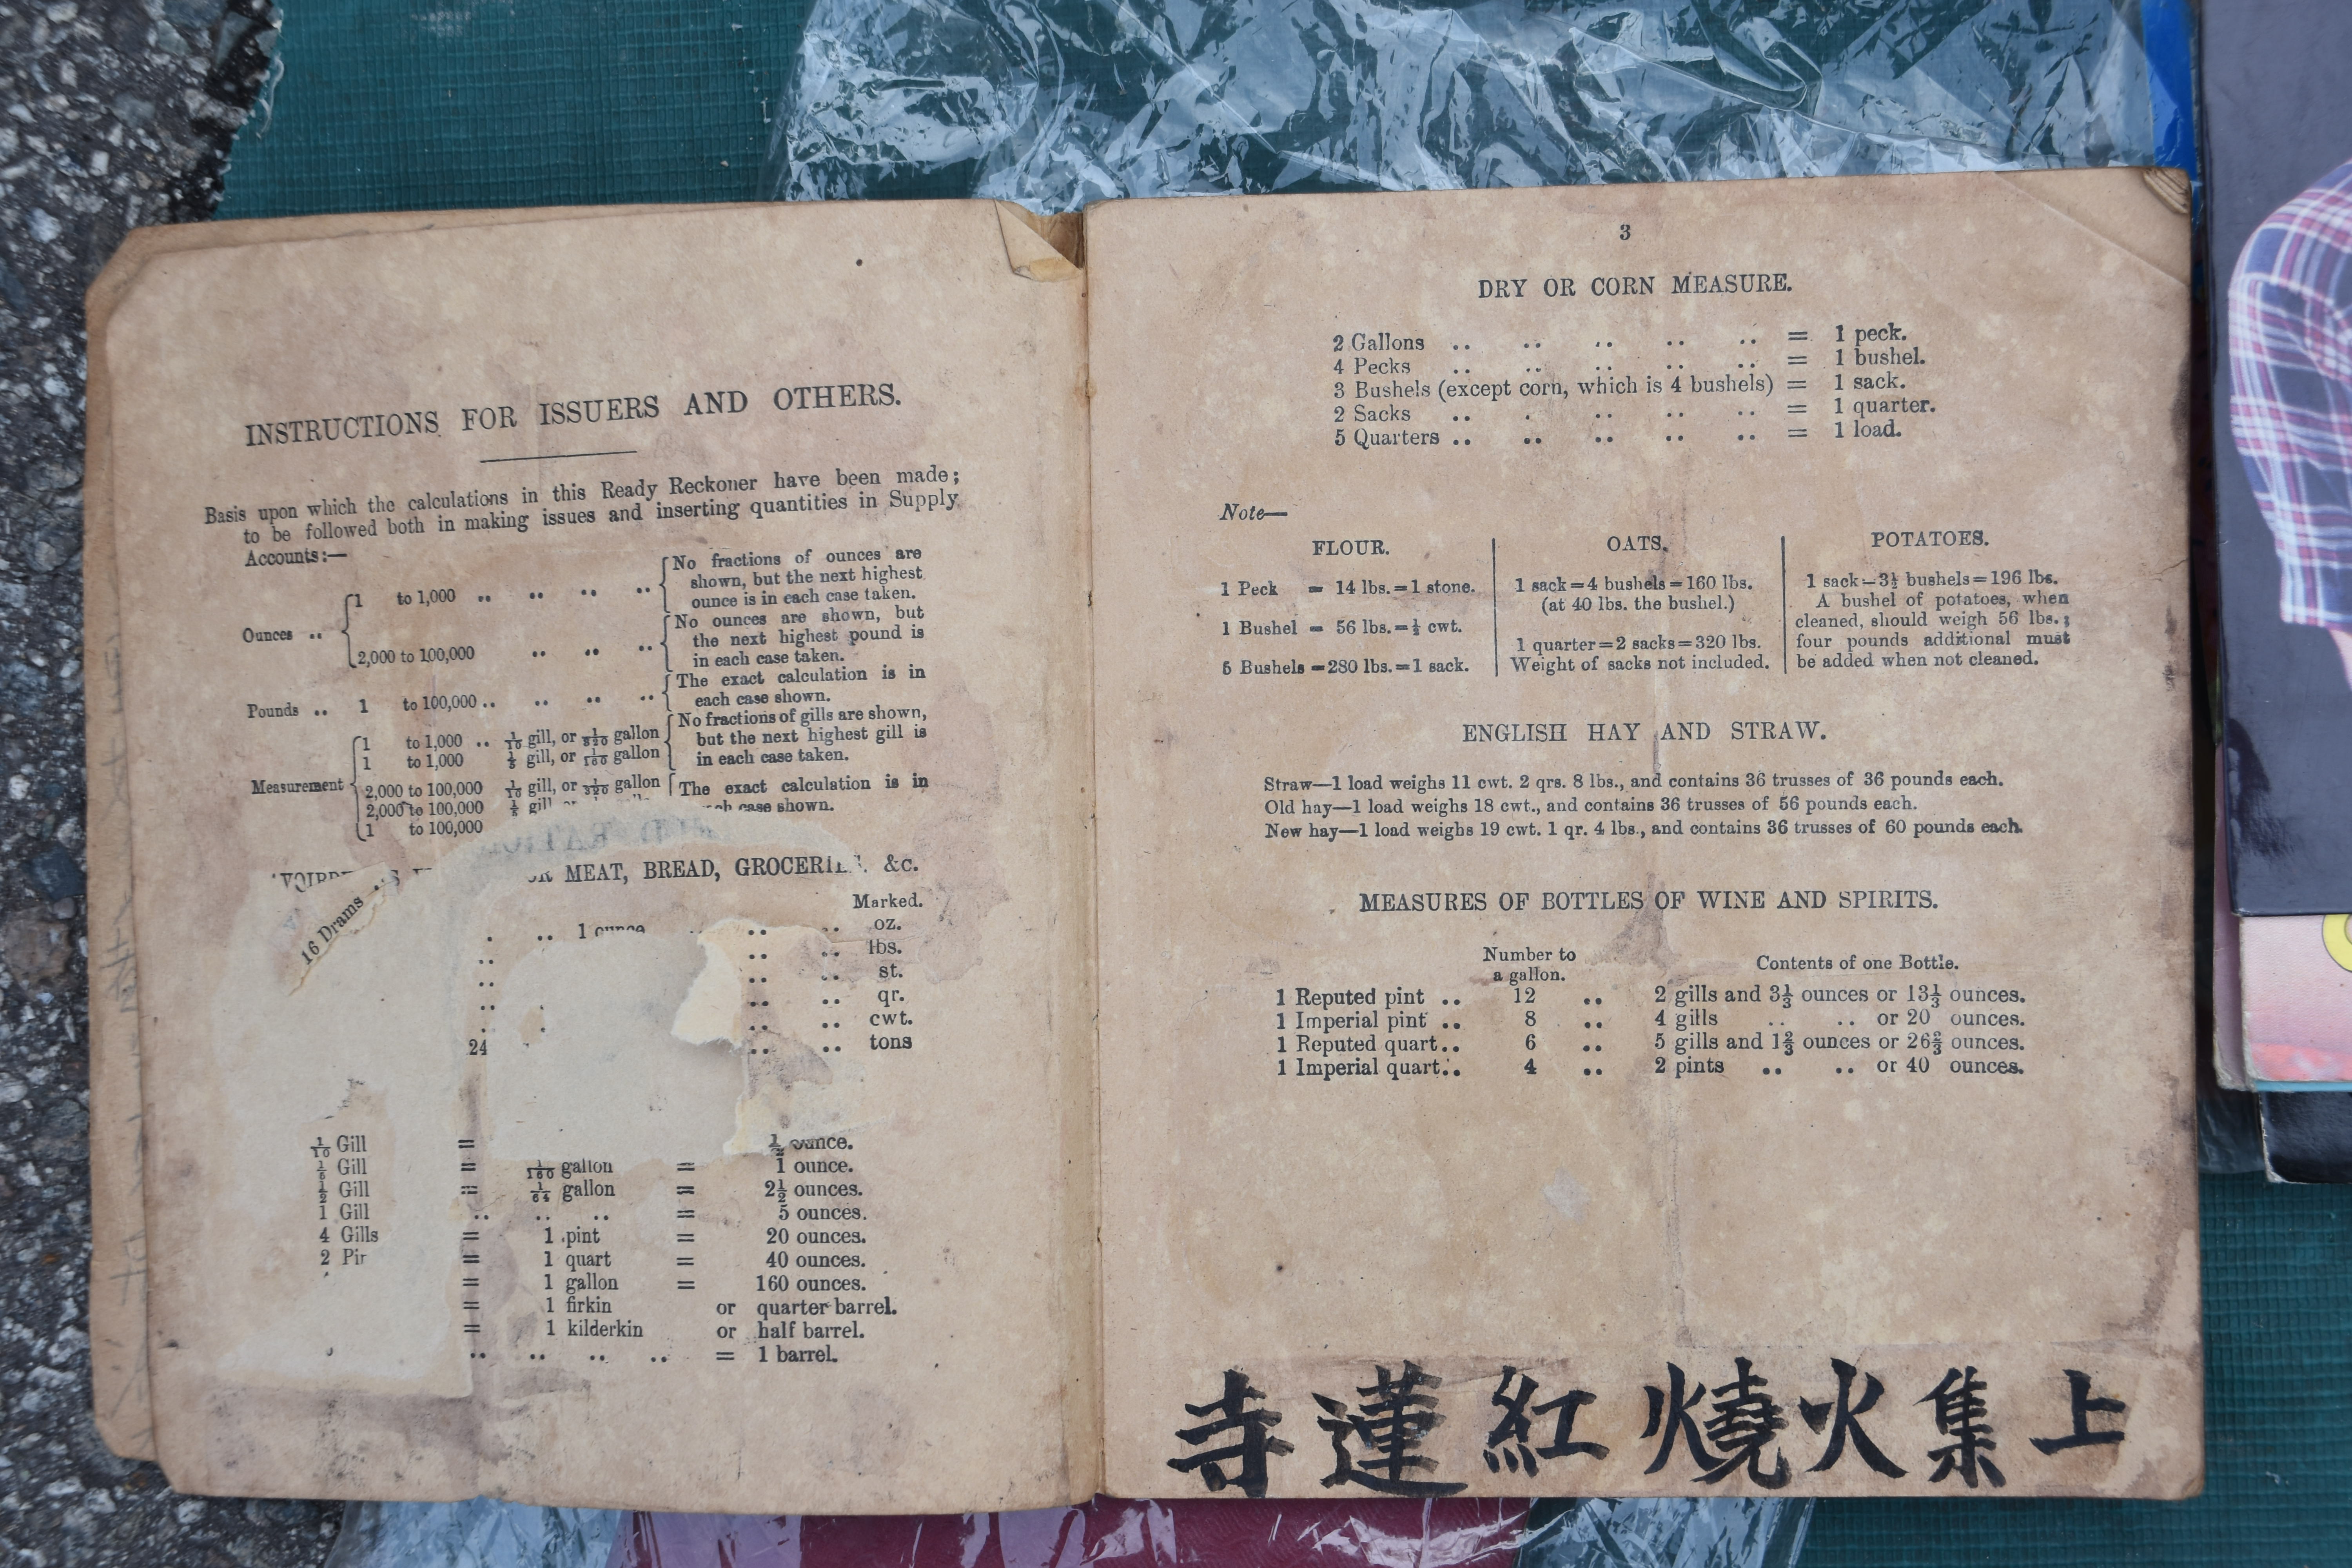 INSTRUCTIONS FOR ISSUERS AND OTHERS.
Basis upon which the calculations in this Ready Reckoner have been made;
to be followed both in making issues and inserting quantities in Supply
Accounts:—
Ounces ..
1 to 1,000 .. .. .. ..
No fractions of ounces are
shown, but the next highest
ounce is in each case taken.
2,000 to 100,000 .. .. ..
No ounces are shown, but
the next highest pound is
in each case taken.
Pounds .. 1 to 100,000 .. .. .. ..
The exact calculation is in
each case shown.
Measurement
1 to 1,000 .. 1/10 gill, or 1/320 gallon
1 to 1,000 1/5 gill, or 1/160 gallon
No fractions of gills are shown,
but the next highest gill is
in each case taken.
2,000 to 100,000 1/10 gill, or 1/320 gallon
2,000 to 100,000 1/5 gill
1 to 100,000
The exact calculation is in
case shown.
MEAT, BREAD, &c.
Marked.
16 Drams
. .. 1 ounce .. .. oz.
.. .. .. lbs.
.. .. .. st.
.. .. .. qr.
. .. .. cwt.
24 .. .. tons
1/10 Gill = 1/2 ounce.
1/5 Gill = 1/160 gallon = 1 ounce.
1/2 Gill = 1/64 gallon = 2½ ounces.
1 Gill .. .. .. = 5 ounces.
4 Gills = 1 pint = 20 ounces.
2 = 1 quart = 40 ounces.
= 1 gallon = 160 ounces.
= 1 firkin or quarter barrel.
= 1 kilderkin or half barrel.
.. .. .. .. = 1 barrel.
3
DRY OR CORN MEASURE.
2 Gallons .. .. .. .. .. = 1 peck.
4 Pecks .. .. .. .. .. = 1 bushel.
3 Bushels (except corn, which is 4 bushels) = 1 sack.
2 Sacks .. . .. .. .. = 1 quarter.
5 Quarters .. .. .. .. .. = 1 load.
Note—
FLOUR.
1 Peck = 14 lbs.=1 stone.
1 Bushel = 56 lbs.=½ cwt.
5 Bushels =280 lbs.=1 sack.
OATS.
1 sack=4 bushels=160 lbs.
(at 40 lbs. the bushel.)
1 quarter=2 sacks=320 lbs.
Weight of sacks not included.
POTATOES.
1 sack=3½ bushels=196 lbs.
A bushel of potatoes, when
cleaned, should weigh 56 lbs.;
four pounds additional must
be added when not cleaned.
ENGLISH HAY AND STRAW.
Straw—1 load weighs 11 cwt. 2 qrs. 8 lbs., and contains 36 trusses of 36 pounds each.
Old hay—1 load weighs 18 cwt., and contains 36 trusses of 56 pounds each.
New hay—1 load weighs 19 cwt. 1 qr. 4 lbs., and contains 36 trusses of 60 pounds each.
MEASURES OF BOTTLES OF WINE AND SPIRITS.
Number to
a gallon.
Contents of one Bottle.
1 Reputed pint .. 12 .. 2 gills and 3⅓ ounces or 13⅓ ounces.
1 Imperial pint .. 8 .. 4 gills .. .. or 20 ounces.
1 Reputed quart .. 6 .. 5 gills and 1⅔ ounces or 26⅔ ounces.
1 Imperial quart .. 4 .. 2 pints .. .. or 40 ounces.
上集火燒紅蓮寺